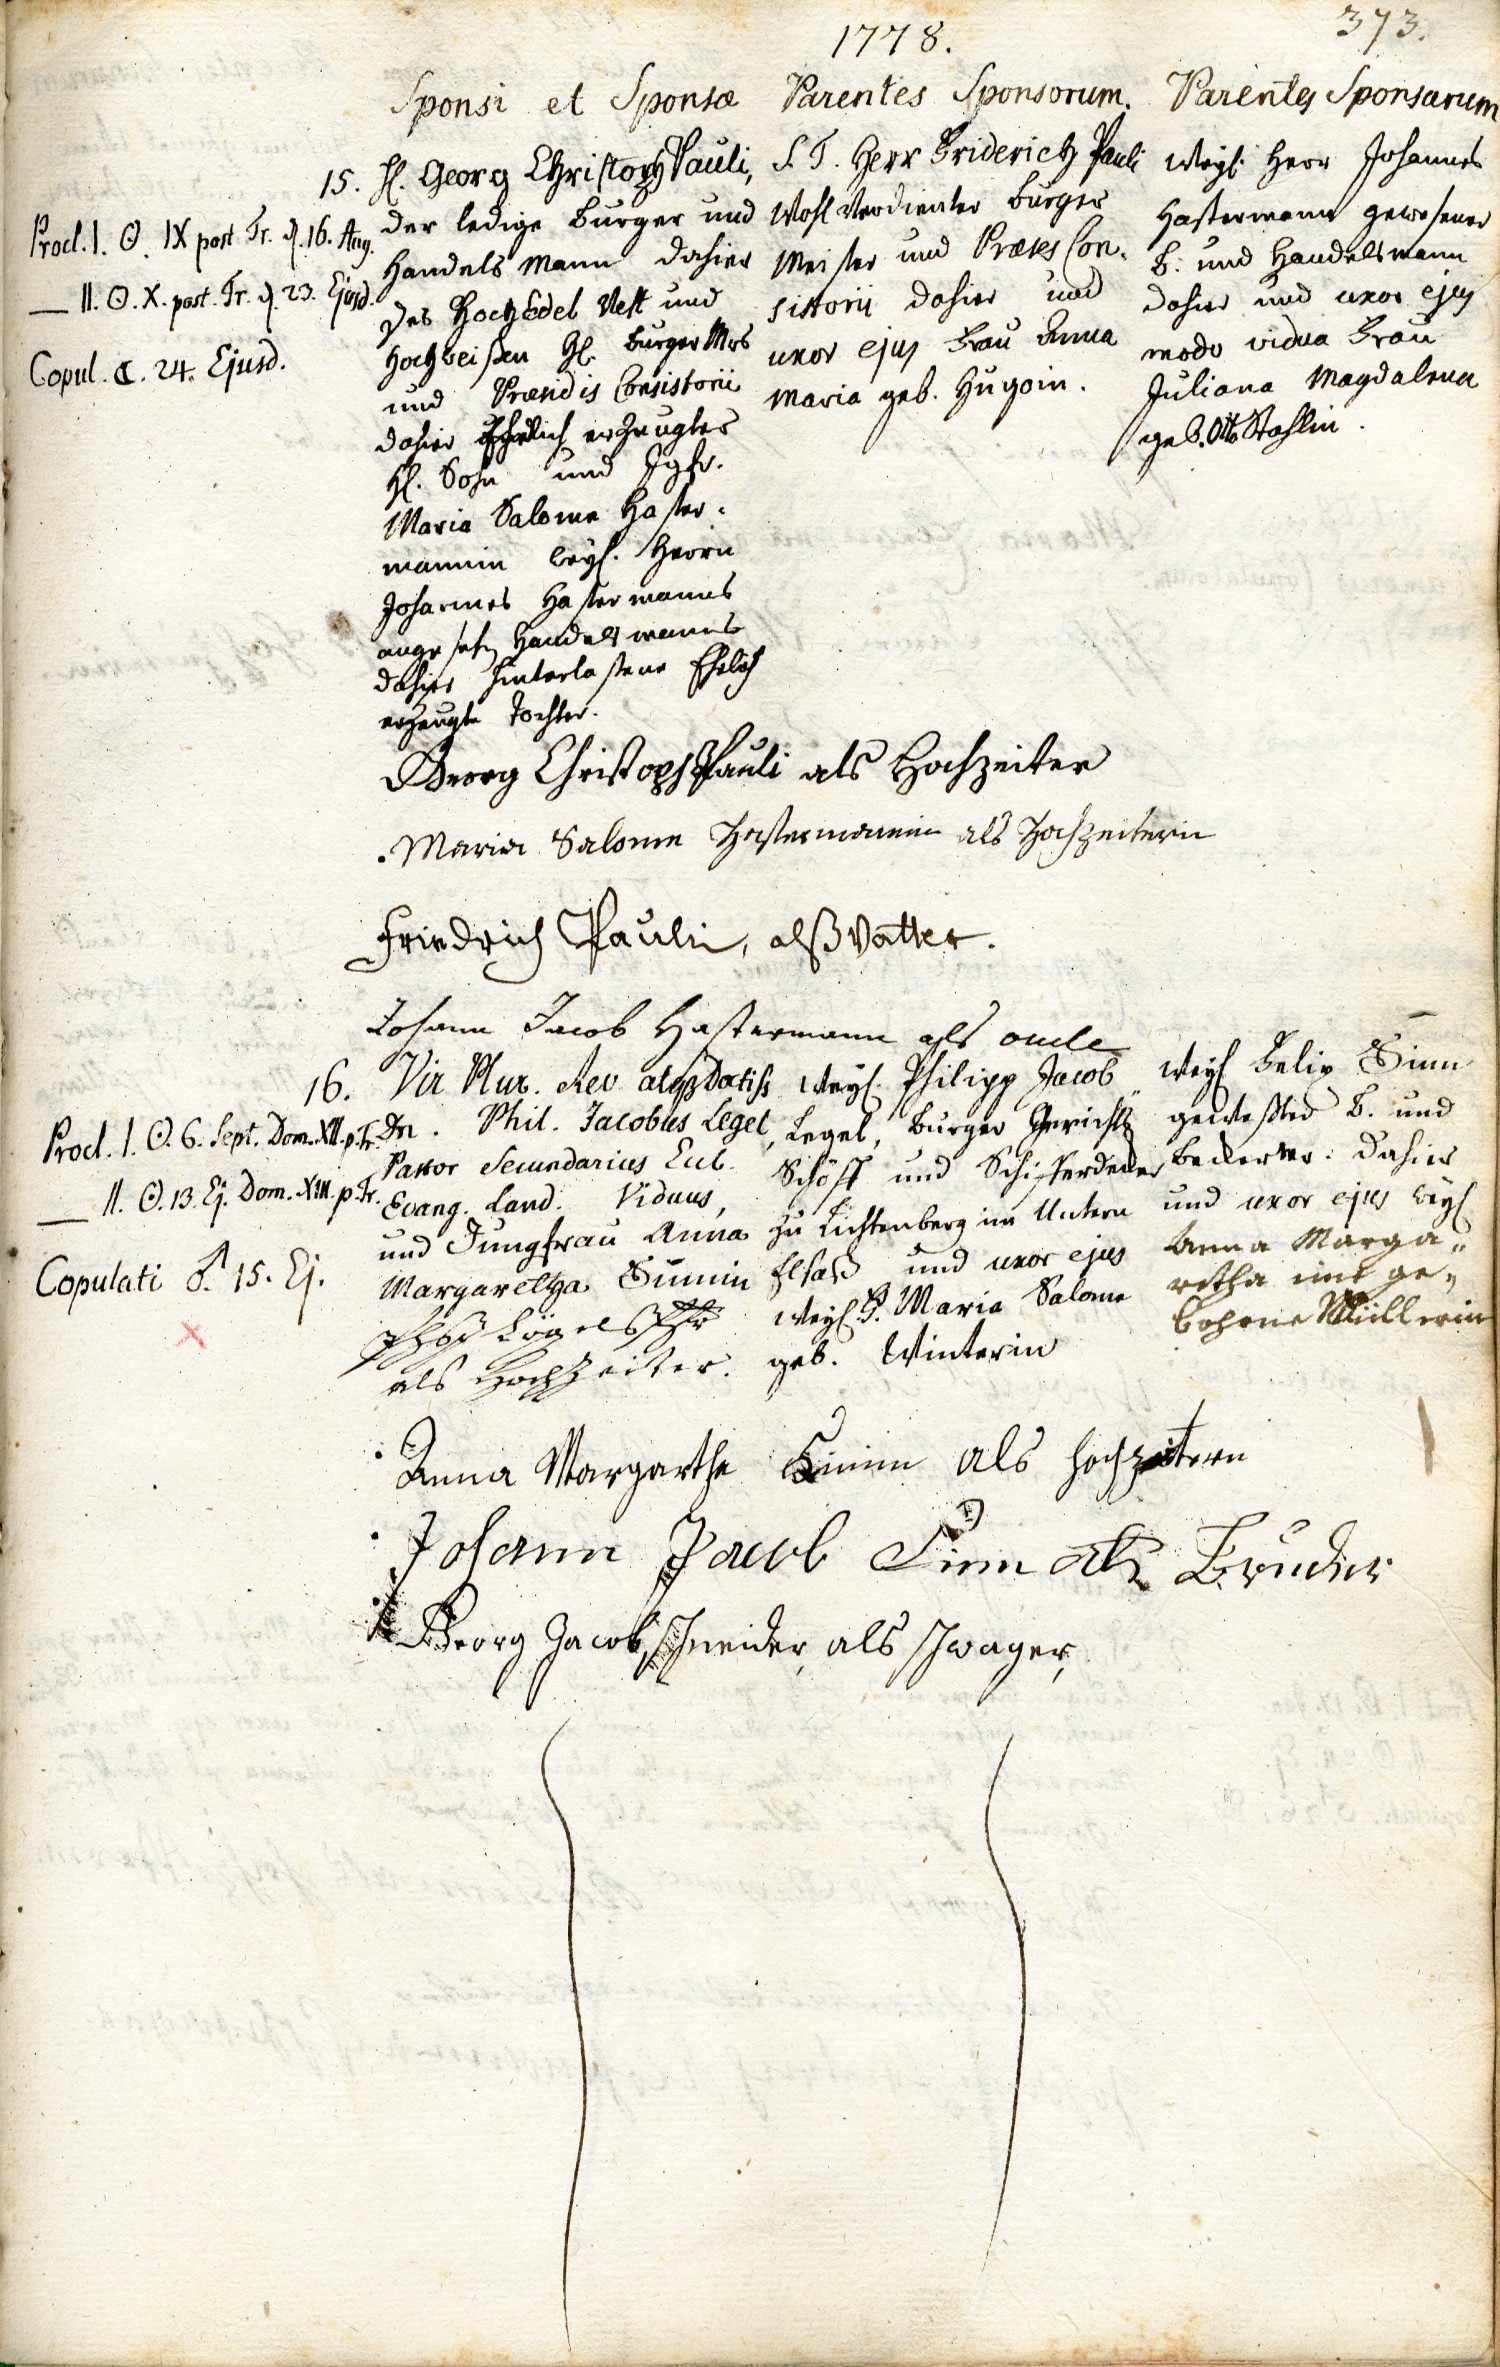 1778.
373.
Sponsi et Sponsæ
Parentes Sponsorum.
Parentes Sponsarum
15.
Procl. I. ☉. IX post. Tr. d. 16. Aug.
— II. ☉. X. post. Tr. d. 23. Ejusd.
Copul. ☾. 24. Ejusd.
H. Georg Christoph Pauli,
der ledige burger und
Handels Mann dahier
des HochEdel Vest und
Hochweisen H. burger Mrs
und Præsidis Consistorii
dahier Ehelich erzeugter
H. Sohn und Jgfr.
Maria Salome Haster-
mannin weyl. Herrn
Johannes Hastermanns
angesehn Handelsmanns
dahier hinterlassene Ehelich
erzeugte Tochter.
S. T. Herr Friderich Pauli
Wohl Verdienter burger
Meister und Præses Con-
sistorii dahier und
uxor ejus Frau Anna
Maria geb. Hugoin.
Weyl. Herr Johannes
Hastermann gewesener
b. und Handelsmann
dahier und uxor ejus
modo vidua Frau
Juliana Magdalena
geb. Otto Stahlin.
Georg Christoph Pauli als Hochzeiter
Maria Salome Hastermannin als Hochzeitern
Friedrich Pauli, alß Vatter.
Johann Jacob Hastermann als oncle
16.
Procl. I. ☉. 6. Sept. Dom. XII. p. Tr.
— II. ☉. 13. Ej. Dom. XIII. p. Tr.
Copulati ♂. 15. Ej.
Vir Plur. Rev. atq Doctiss
Dn. Phil. Jacobus Legel,
Pastor Secundarius Eccl.
Evang. Land. Viduus,
und Jungfrau Anna
Margaretha Sinnin
als Hochzeiter.
Weyl. Philipp Jacob
Legel, burger Gerichts
Schöff und Schifferdecker
zu Lichtenberg im Untern
Elsaß und uxor ejus
Weyl. F. Maria Salome
geb. Winterin
Weyl Felix Sinn
gewester b. und
Beckermr. dahier
und uxor ejus weyl
Anna Marga-
retha eine ge-
bohrne Müllerin
Anna Margartha Sinnin als hochzeitern
Johann Jacob Sinn als Bruder
Georg Jacob, schneider, als schwager,